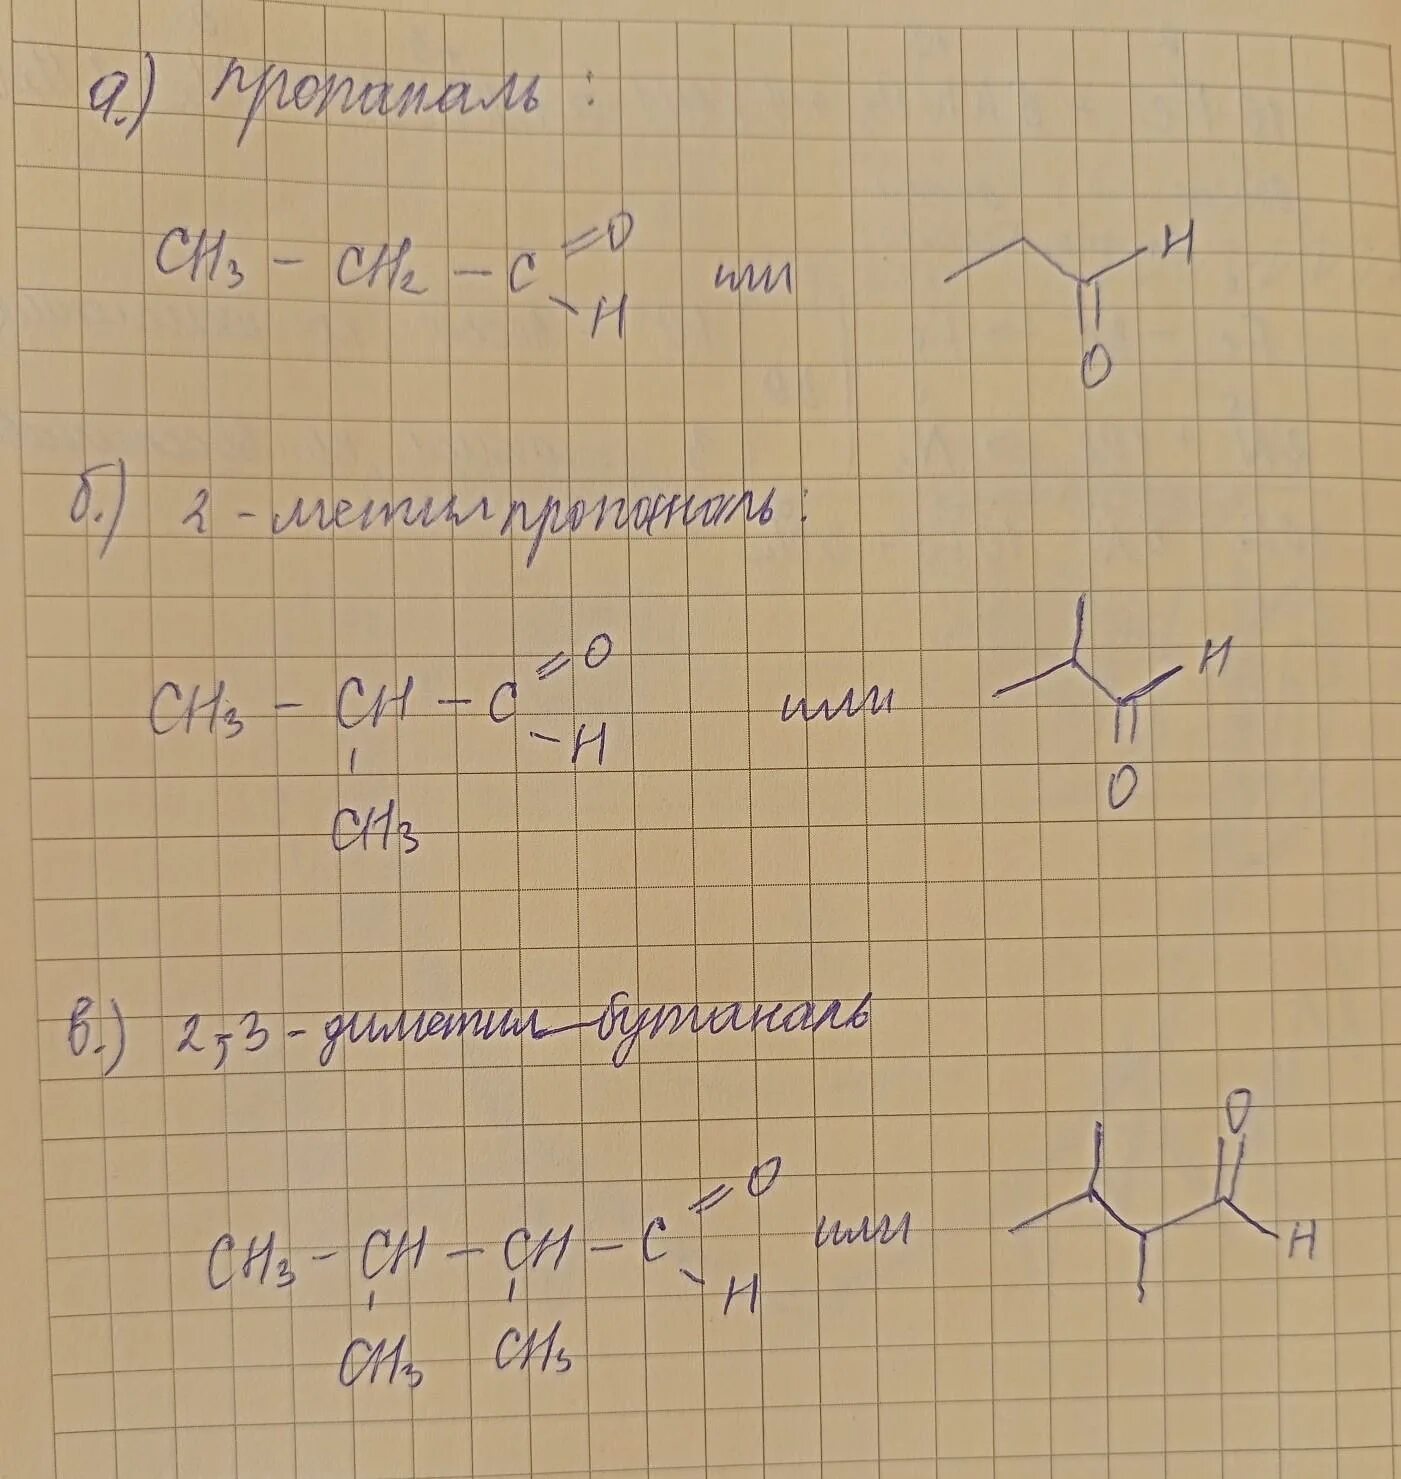 а.) пропаналь:
CH3 - CH2 - C =O -H или H O
б.) 2-метилпропаналь:
CH3 - CH - C =O -H или H O
CH3
в.) 2,3-диметил-бутаналь
CH3 - CH - CH - C =O -H или O H
CH3 CH3